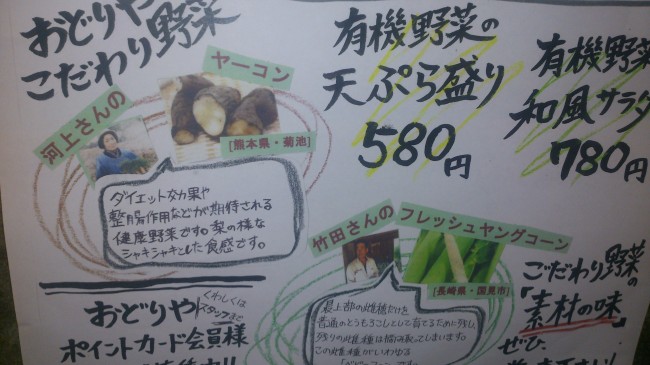 おどりや
こだわり野菜
河上さんの
ヤーコン
[熊本県・菊池]
ダイエット効果や
整腸作用などが期待される
健康野菜です。梨の様な
シャキシャキとした食感です。
有機野菜の
天ぷら盛り
580円
有機野菜
和風サラダ
780円
竹田さんの
フレッシュヤングコーン
[長崎県・国見市]
最上部の雌穂だけを
普通のとうもろこしとして育てるために残し、
残りの雌穂は摘み取ってしまいます。
この雌穂がいわゆる
こだわり野菜の
「素材の味」
ぜひ、
おどりや
くわしくは
スタッフまで
ポイントカード会員様